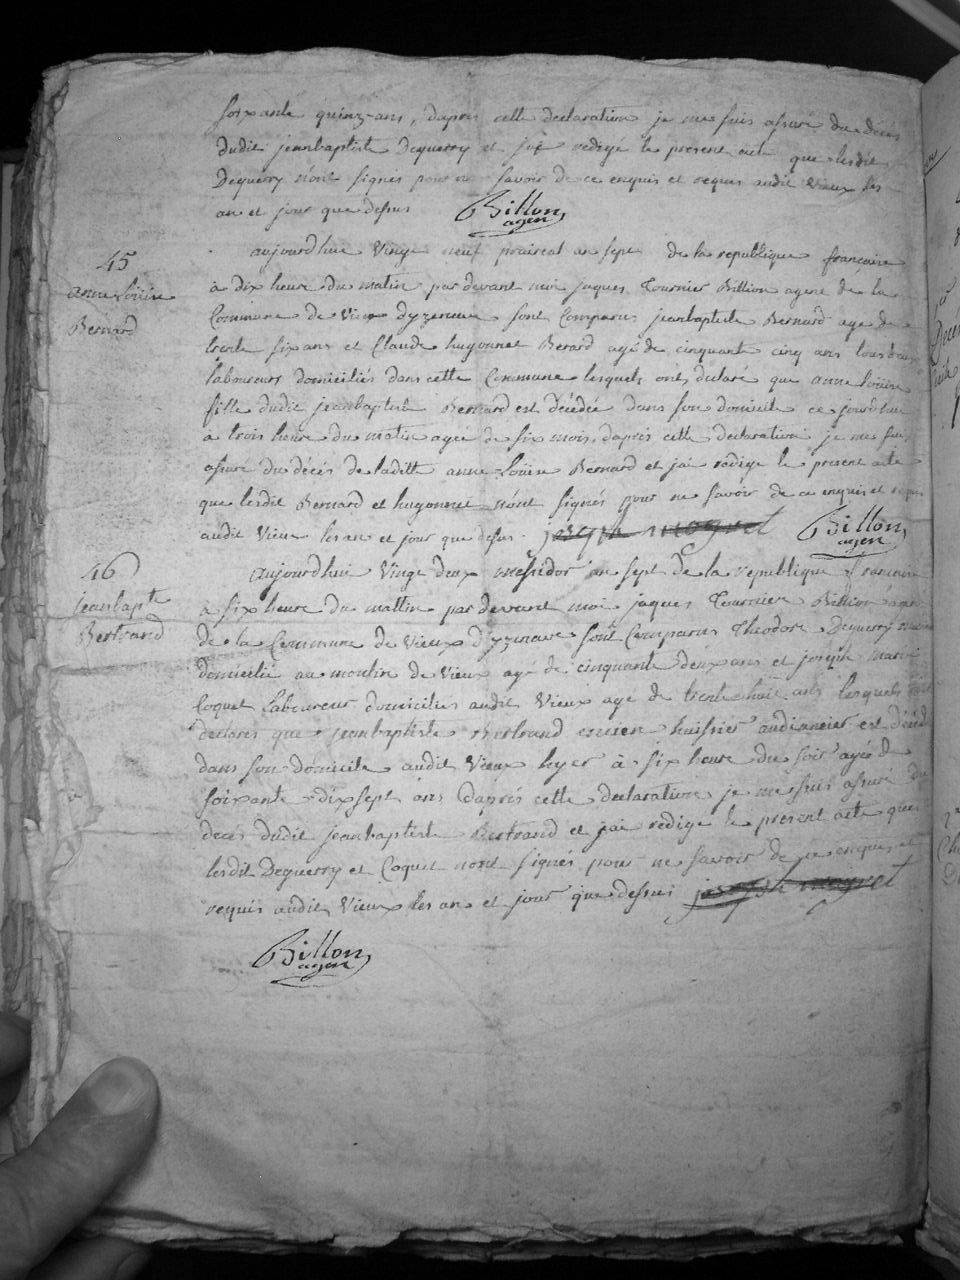 soixante quinz-ans, dapres cette declaration je me suis assuré du décés
dudit jeanbaptiste Deguerry et jai redigé le present acte que lesdit
Deguerry n'ont signés pour ne savoir de ce enquis et requis audit Vieux les
an et jour que dessus Billon
agen
45
anne Loüise
Bernard
aujourdhui Vingt neuf praireal an sept de la republique françaire
a dix heure du matin par devant moi jaques Tournier Billion agent de la
Commune de Vieux dyzenave sont Comparus jeanbaptiste Bernard age de
trente six ans et Claude hugonnet Berard agé de cinquante cinq ans tous deux
laboureurs domiciliés dans cette Commune lesquels ont declaré que anne Loüise
fille dudit jeanbaptiste Bernard est décédée dans son domicile ce jourdhui
a trois heure du matin agée de six mois, dapres cette declaration je me suis
assuré du décés de laditte anne Loüise Bernard et jai rédigé le present acte
que lesdit Bernard et hugonnet n'ont signés pour ne savoir de ce enquis et requis
audit Vieux les an et jour que dessus. joseph moyret Billon
agen
46
jeanbapte
Bertrand
aujourdhui Vingt deux messidor an sept de la republique francaise
a six heure du mattin par devant moi jaques Tournier Billion agen
de la Commune de Vieux d'yzenave sont Comparus Theodore Deguerry
domicilié au moulin de Vieux agé de cinquante deux ans et joseph marie
Coquet Laboureur domiciliés audit Vieux age de trente huit ans lesquels ont
declares que jeanbaptiste Bertrand encien huissier audiancier est décédé
dans son domicile audit Vieux hyer à six heure du soir agé de
soixante dixsept ans daprés cette declaration je me suis assuré du
decés dudit jeanbaptiste Bertrand et jai redigé le present acte que
lesdit Deguerry et Coquet nont signés pour ne savoir de ce enquis et
requis audit Vieux les an et jour que dessus joseph moyret
Billon
agen